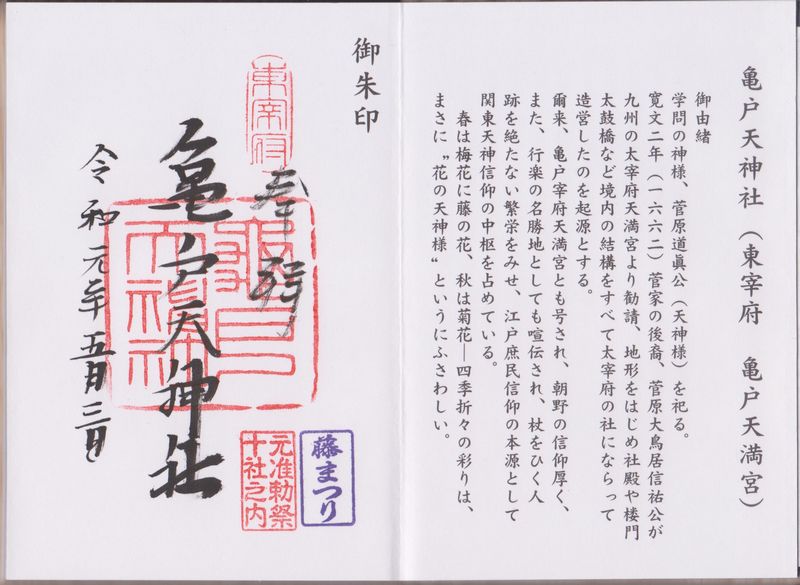 亀戸天神社（東宰府　亀戸天満宮）
御由緒
学問の神様、菅原道眞公（天神様）を祀る。
寛文二年（一六六二）菅家の後裔、菅原大鳥居信祐公が
九州の太宰府天満宮より勧請、地形をはじめ社殿や楼門
太鼓橋など境内の結構をすべて太宰府の社にならって
造営したのを起源とする。
爾来、亀戸宰府天満宮とも号され、朝野の信仰厚く、
また、行楽の名勝地としても喧伝され、杖をひく人
跡を絶たない繁栄をみせ、江戸庶民信仰の本源として
関東天神信仰の中枢を占めている。
春は梅花に藤の花、秋は菊花―四季折々の彩りは、
まさに〝花の天神様〟というにふさわしい。
御朱印
東宰府
奉拝
亀戸天神社
亀戸天神社
令和元年五月三日
藤まつり
元准勅祭
十社之内